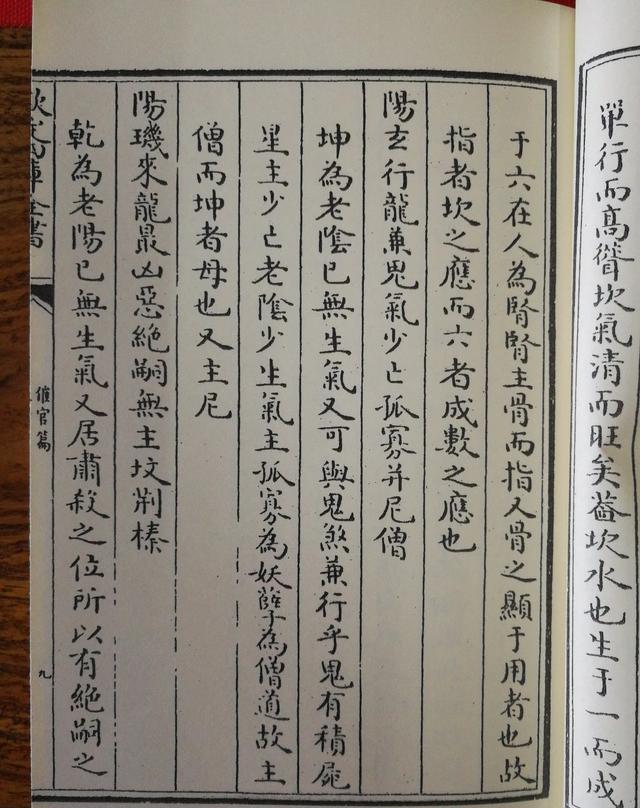 單行而高聳坎氣清而旺矣蓋坎水也生于一而成
于六在人為腎腎主骨而指又骨之顯于用者也故
指者坎之應而六者成數之應也
陽玄行龍兼鬼氣少亡孤寡并尼僧
坤為老陰已無生氣又可與鬼煞兼行乎鬼有積屍
星主少亡老陰少生氣主孤寡為妖孽子為僧道故主
僧而坤者母也又主尼
陽璣來龍最凶惡絕嗣無主坟荆榛
乾為老陽已無生氣又居肅殺之位所以有絕嗣之
欽定四庫全書
催官篇
九